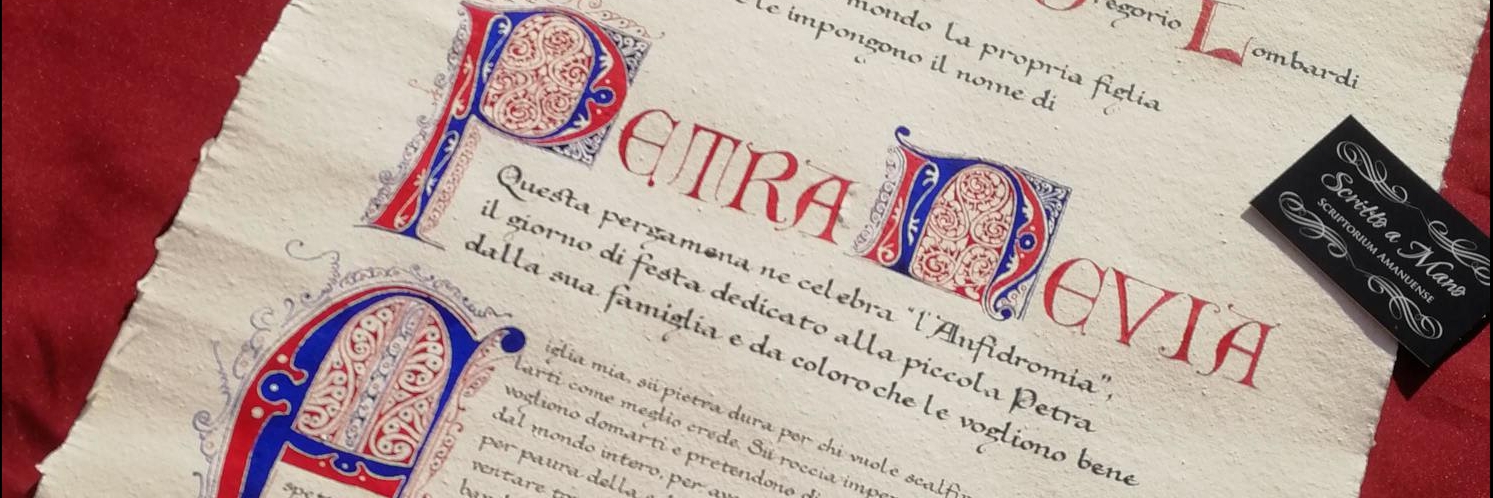 regorio Lombardi
mondo la propria figlia
le impongono il nome di
PETRA NEVIA
Questa pergamena ne celebra "l'Anfidromia",
il giorno di festa dedicato alla piccola Petra
dalla sua famiglia e da coloro che le vogliono bene
iglia mia, sii pietra dura per chi vuole scalfir
larti come meglio crede. Sii roccia imper
vogliono domarti e pretendono di
dal mondo intero, per
per paura della
ventare
Scritto a Mano
SCRIPTORIUM AMANUENSE